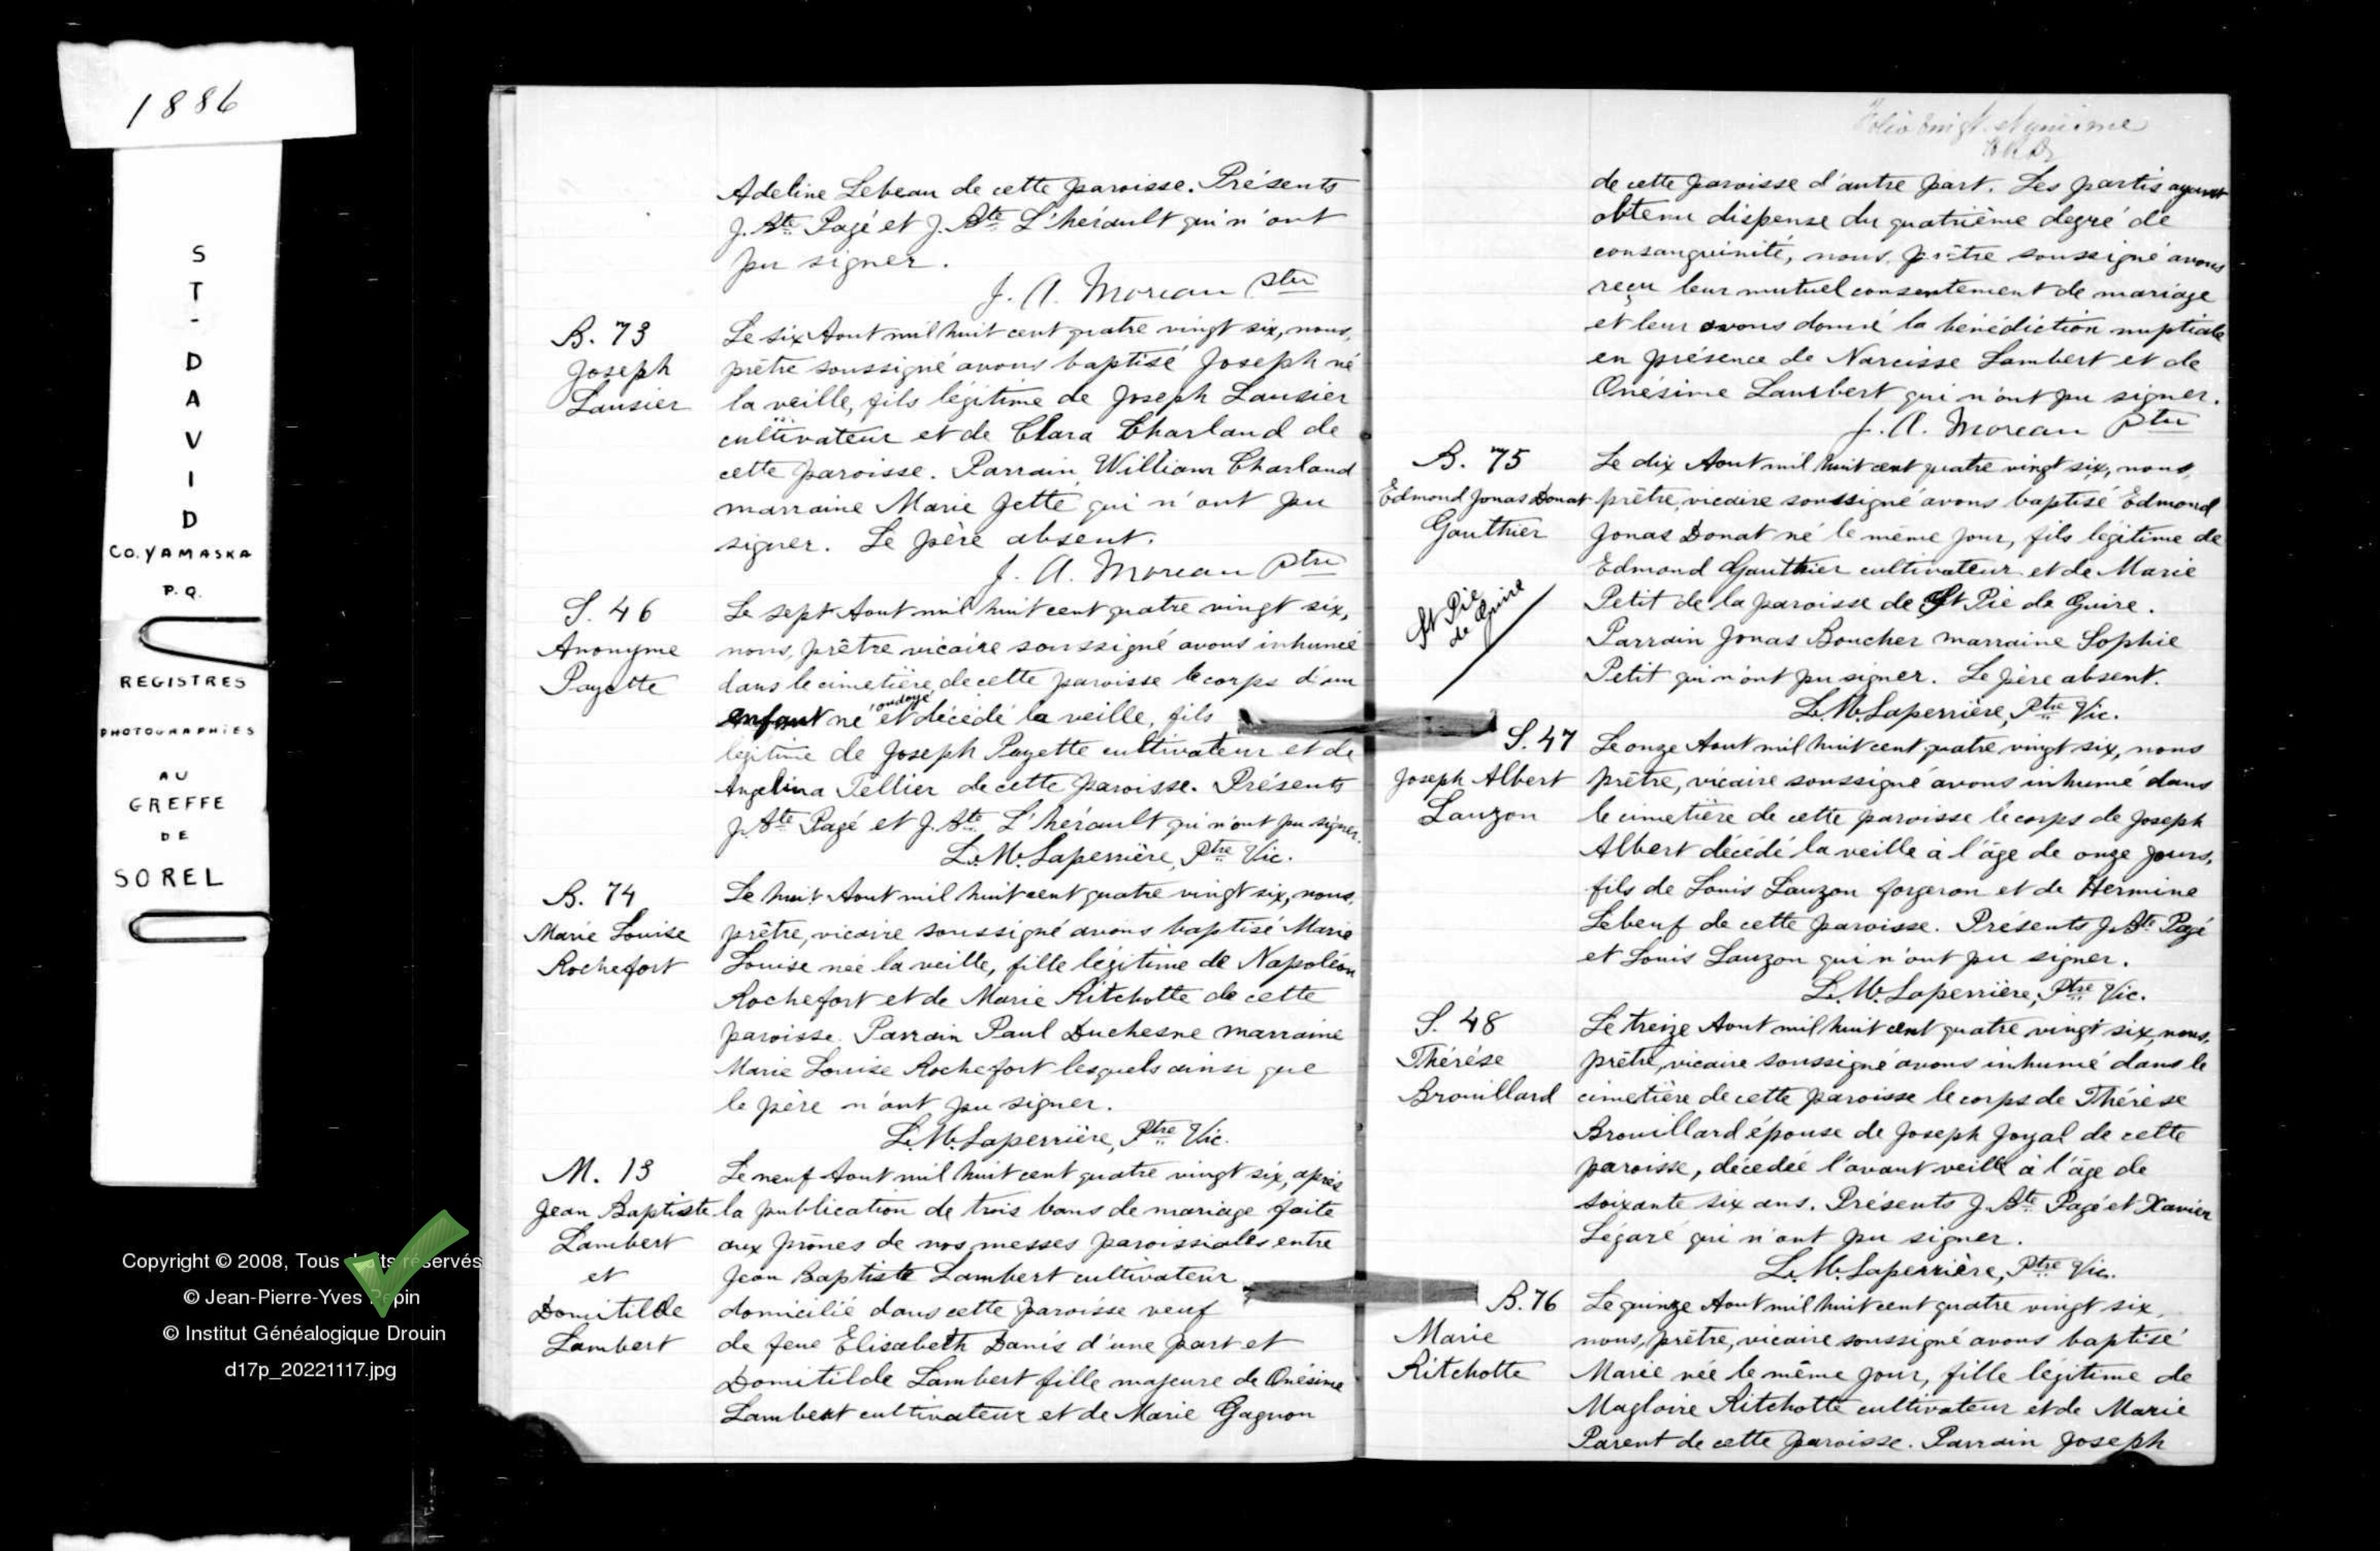 1886
S
T
-
D
A
V
I
D
CO. YAMASKA
P.Q.
REGISTRES
PHOTOGRAPHIES
AU
GREFFE
DE
SOREL
Copyright © 2008, Tous droits réservés
© Jean-Pierre-Yves Pepin
© Institut Généalogique Drouin
d17p_20221117.jpg
Adeline Lebeau de cette paroisse. Présents
J. Bte Pagé et J. Bte L'hérault qui n'ont
pu signer.
J. A. Moreau Ptre
B. 73
Joseph
Lausier
Le six Aout mil huit cent quatre vingt six, nous,
prêtre soussigné avons baptisé Joseph né
la veille, fils légitime de Joseph Lausier
cultivateur et de Clara Charland de
cette paroisse. Parrain William Charland
marraine Marie Jetté qui n'ont pu
signer. Le père absent.
J. A. Moreau Ptre
S. 46
Anonyme
Payette
Le sept Aout mil huit cent quatre vingt six,
nous, prêtre vicaire soussigné avons inhumé
dans le cimetière de cette paroisse le corps d'un
enfant né ondoyé et décédé la veille, fils
légitime de Joseph Payette cultivateur et de
Angelina Tellier de cette paroisse. Présents
J. Bte Pagé et J. Bte L'hérault qui n'ont pu signer.
L. M. Laperrière, Ptre Vic.
B. 74
Marie Louise
Rochefort
Le huit Aout mil huit cent quatre vingt six, nous,
prêtre, vicaire soussigné avons baptisé Marie
Louise née la veille, fille légitime de Napoléon
Rochefort et de Marie Ritchotte de cette
paroisse. Parrain Paul Duchesne marraine
Marie Louise Rochefort lesquels ainsi que
le père n'ont pu signer.
L. M. Laperrière, Ptre Vic.
M. 13
Jean Baptiste
Lambert
et
Domitilde
Lambert
Le neuf Aout mil huit cent quatre vingt six, après
la publication de trois bans de mariage faite
aux prônes de nos messes paroissiales entre
Jean Baptiste Lambert cultivateur
domicilié dans cette paroisse veuf
de feue Elisabeth Danis d'une part et
Domitilde Lambert fille majeure de Onésime
Lambert cultivateur et de Marie Gagnon
Folio vingt et unième
de cette paroisse d'autre part. Les partis ayant
obtenu dispense du quatrième degré de
consanguinité, nous, prêtre soussigné avons
reçu leur mutuel consentement de mariage
et leur avons donné la bénédiction nuptiale
en présence de Narcisse Lambert et de
Onésime Lambert qui n'ont pu signer.
J. A. Moreau Ptre
B. 75
Edmond Jonas Donat
Gauthier
St Pie
de Guire
Le dix Aout mil huit cent quatre vingt six, nous,
prêtre, vicaire soussigné avons baptisé Edmond
Jonas Donat né le même jour, fils légitime de
Edmond Gauthier cultivateur et de Marie
Petit de la paroisse de St Pie de Guire.
Parrain Jonas Boucher marraine Sophie
Petit qui n'ont pu signer. Le père absent.
L. M. Laperrière, Ptre Vic.
S. 47
Joseph Albert
Lauzon
Le onze Aout mil huit cent quatre vingt six, nous
prêtre, vicaire soussigné avons inhumé dans
le cimetière de cette paroisse le corps de Joseph
Albert décédé la veille à l'âge de onze jours,
fils de Louis Lauzon forgeron et de Hermine
Lebeuf de cette paroisse. Présents J. Bte Pagé
et Louis Lauzon qui n'ont pu signer.
L. M. Laperrière, Ptre Vic.
S. 48
Thérése
Brouillard
Le treize Aout mil huit cent quatre vingt six, nous,
prêtre, vicaire soussigné avons inhumé dans le
cimetière de cette paroisse le corps de Thérèse
Brouillard épouse de Joseph Joyal de cette
paroisse, décédée l'avant veille à l'âge de
soixante six ans. Présents J. Bte Pagé et Xavier
Légaré qui n'ont pu signer.
L. M. Laperrière, Ptre Vic.
B. 76
Marie
Ritchotte
Le quinze Aout mil huit cent quatre vingt six,
nous, prêtre, vicaire soussigné avons baptisé
Marie née le même jour, fille légitime de
Magloire Ritchotte cultivateur et de Marie
Parent de cette paroisse. Parrain Joseph